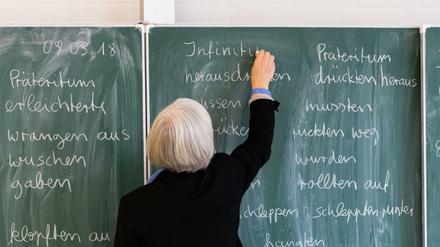 09.03.18
Präteritum
erleichterte
wrangen aus
wuschen
gaben
klopften au
Infinitiv
herausdrücken
üssen
ücken
schleppen
hängten
Präteritum
drückten heraus
mussten
rückten weg
wurden
rollten auf
schleppten runter